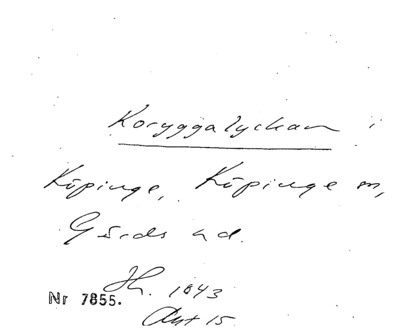 Koryggalyckan i
Köpinge, Köpinge sn,
Gärds hd.
Jh. 1843
Nr 7855.
Akt 15